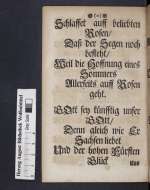 Schlaffet auff beliebten
Rosen/
Daß der Segen noch
bestehet/
Weil die Hoffnung eines
Sommers
Allerseits auff Rosen
geht.
GOtt sey künfftig unser
GOtt/
Denn gleich wie Er
Sachsen liebet
Und der hohen Fürsten
Glück
Herzog August Bibliothek Wolfenbüttel